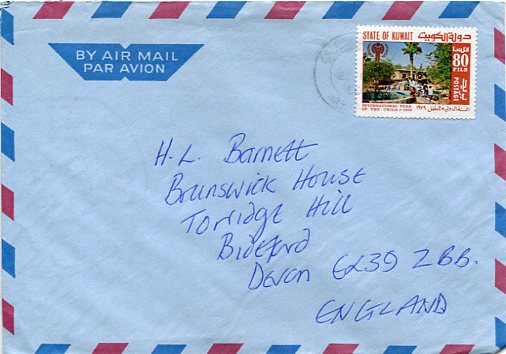 BY AIR MAIL
PAR AVION
STATE OF KUWAIT دولة الكويت
80
FILS
POSTAGE
INTERNATIONAL YEAR
OF THE CHILD 1979
السنة الدولية للطفل ١٩٧٩
H.L. Barnett
Brunswick House
Torridge Hill
Bideford
Devon EX39 2BB.
ENGLAND